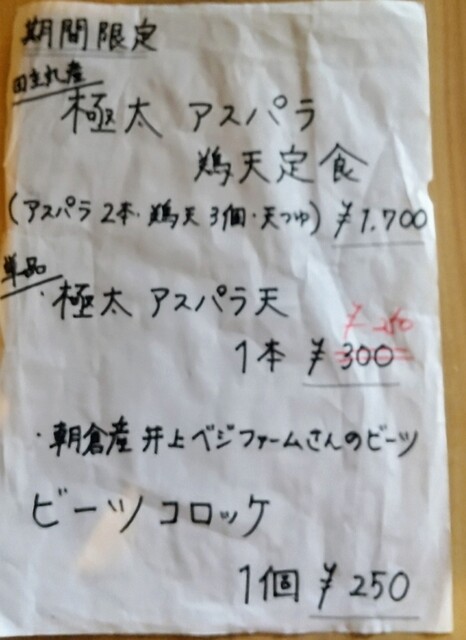 期間限定
田主丸産
極太 アスパラ
鶏天定食
(アスパラ 2本・鶏天 3個・天つゆ) ¥1,700
単品
・極太 アスパラ天
¥250
1本 ¥300
・朝倉産 井上ベジファームさんのビーツ
ビーツコロッケ
1個 ¥250